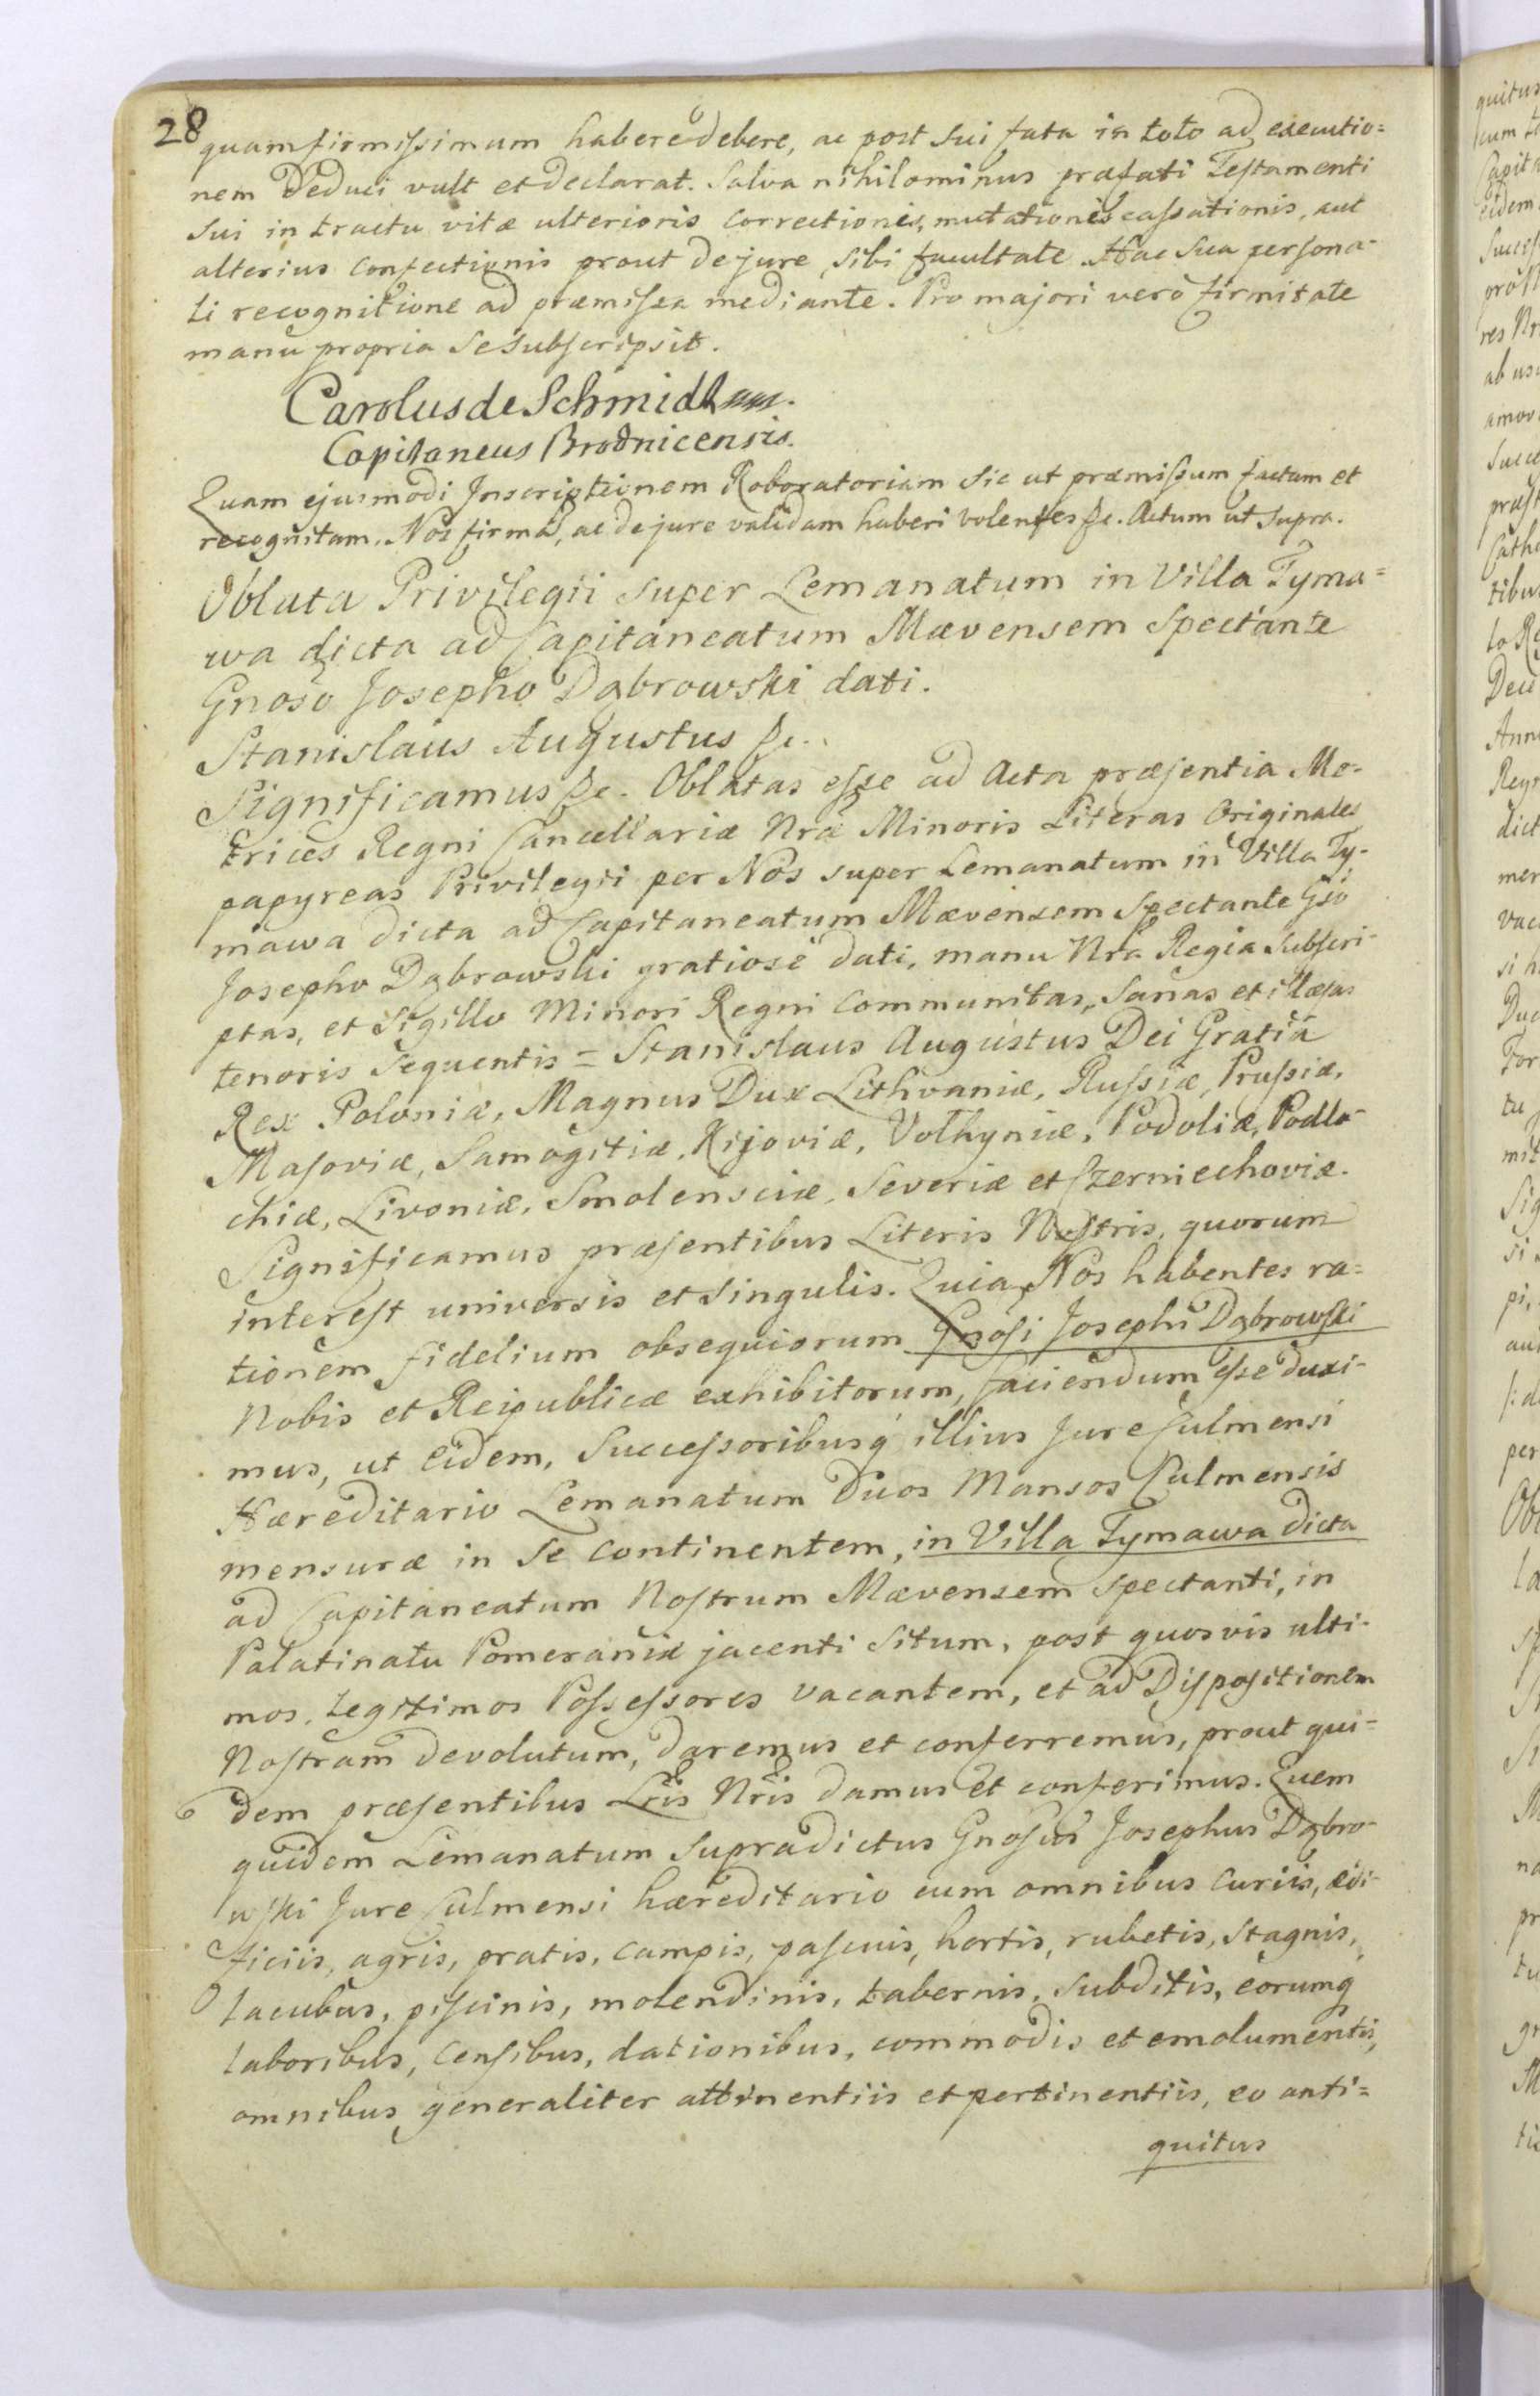 28
quam firmissimum habere debere, ac post sui fata in toto ad executio=
nem deduci vult et declarat. Salva nihilominus præfati Testamenti
sui in tractu vitæ ulterioris correctionis, mutationis cassationis, aut
alterius confectionis prout de jure sibi facultate. Hac sua persona-
li recognitione ad præmissa mediante. Pro majori vero firmitate
manu propria se subscripsit.
Carolus de Schmidt
Capitaneus Brodnicensis.
Quam ejusmodi Inscriptionem Roboratoriam sic ut præmissum factam et
recognitam. Nos firmã, ac de jure validam haberi volentes &c. Actum ut supra.
Oblata Privilegii super Lemanatum in Villa Tyma=
wa dicta ad Capitaneatum Mævensem spectante
Gnoso Josepho Dąbrowski dati.
Stanislaus Augustus &c.
Significamus &c. Oblatas esse ad Acta præsentia Me-
trices Regni Cancellariæ Nræ Minoris Literas Originales
papyreas Privilegii per Nos super Lemanatum in Villa Ty-
mawa dicta ad Capitaneatum Mævensem spectante Gso
Josepho Dąbrowski gratiose dati, manu Nra Regia subscri-
ptas, et Sigillo Minori Regni communitas, Sanas et illæsas
tenoris sequentis = Stanislaus Augustus Dei Gratiâ
Rex Poloniæ, Magnus Dux Lithvaniæ, Russiæ, Prussiæ,
Masoviæ, Samogitiæ, Kijoviæ, Volhyniæ, Podoliæ, Podla-
chiæ, Livoniæ, Smolensciæ, Severiæ et Czerniechoviæ.
Significamus præsentibus Literis Nostris, quorum
interest universis et singulis. Quia Nos habentes ra=
tionem fidelium obsequiorum Gnosi Josephi Dąbrowski
Nobis et Reipublicæ exhibitorum, faciendum esse duxi-
mus, ut eidem, Successoribusq́ illius Jure Culmensi
Hæreditario Lemanatum Duos Mansos Culmensis
mensuræ in se continentem, in Villa Tymawa dicta
ad Capitaneatum Nostrum Mævensem spectanti, in
Palatinatu Pomeraniæ jacenti situm, post quosvis ulti-
mos, legitimos Possessores vacantem, et ad Dispositionem
Nostram devolutum, daremus et conferremus, prout qui=
dem præsentibus Lris Nris damus et conferimus. Quem
quidem Lemanatum supradictus Gnosus Josephus Dąbro-
wski Jure Culmensi hæreditario cum omnibus curiis, ædi-
ficiis, agris, pratis, campis, pascuis, hortis, rubetis, stagnis,
lacubus, piscinis, molendinis, tabernis, subditis, eorumq
laboribus, censibus, dationibus, commodis et emolumentis,
omnibus generaliter attinentiis et pertinentiis, eo anti=
quitus